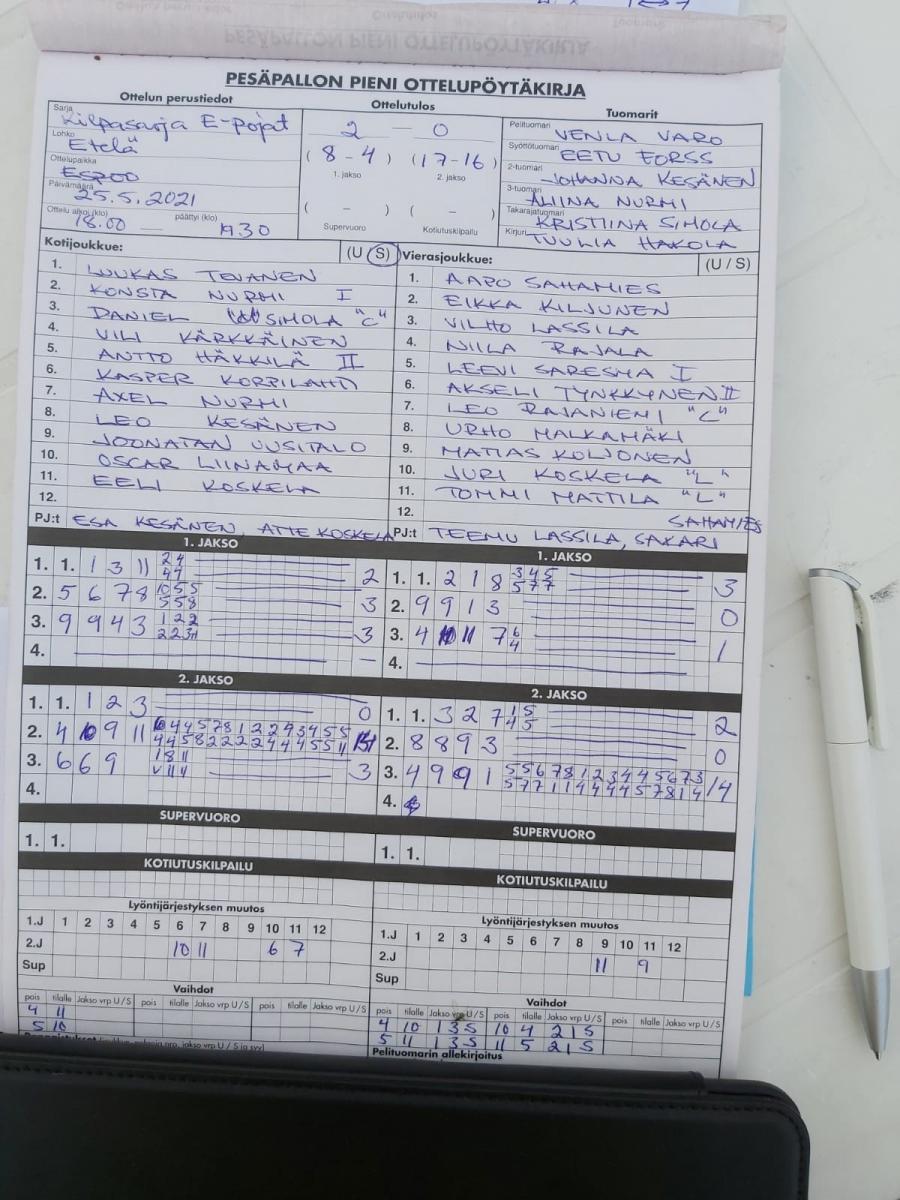 PESÄPALLON PIENI OTTELUPÖYTÄKIRJA
Ottelun perustiedot
Sarja Kilpasarja E-pojat
Lohko Etelä
Ottelupaikka ESPOO
Päivämäärä 25.5.2021
Ottelu alkoi (klo) 18.00 päättyi (klo) 1930
Ottelutulos
2 — 0
(8-4) (17-16)
1. jakso 2. jakso
( - ) ( - )
Supervuoro Kotiutuskilpailu
Tuomarit
Pelituomari VENLA VARO
Syöttötuomari EETU FORSS
2-tuomari JOHANNA KESÄNEN
3-tuomari ALIINA NURMI
Takarajatuomari KRISTIINA SIHOLA
Kirjuri TUULIA HAKOLA
Kotijoukkue: (U / S)
1. LUUKAS TOVANEN
2. KONSTA NURMI I
3. DANIEL SIHOLA "C"
4. VILI KÄRKKÄINEN
5. ANTTO HÄKKILÄ II
6. KASPER KORPILAHTI
7. AXEL NURMI
8. LEO KESÄNEN
9. JOONATAN UUSITALO
10. OSCAR LIINAMAA
11. EELI KOSKELA
12.
PJ:t ESA KESÄNEN, ATTE KOSKELA
Vierasjoukkue: (U / S)
1. AAPO SAHAMIES
2. EIKKA KILJUNEN
3. VILHO LASSILA
4. NIILA RAJALA
5. LEEVI SARESMA I
6. AKSELI TYNKKYNEN II
7. LEO RAJANIEMI "C"
8. URHO MALKAMÄKI
9. MATIAS KOLJONEN
10. JURI KOSKELA "L"
11. TOMMI MATTILA "L"
12.
PJ:t TEEMU LASSILA, SAKARI SAHAMIES
1. JAKSO
1. 1. 1 3 11 2 4 2
4 7
2. 5 6 7 8 10 5 5 3
5 5 8
3. 9 9 4 3 1 2 2 3
2 2 3 11
4. —
1. JAKSO
1. 1. 2 1 8 3 4 5 3
5 7 7
2. 9 9 1 3 0
3. 4 10 11 7 6 1
4
4.
2. JAKSO
1. 1. 1 2 3 0
2. 4 10 9 11 10 4 4 5 7 8 1 2 2 2 4 3 4 5 5 14
4 4 5 8 2 2 2 2 4 4 4 5 5 11
3. 6 6 9 1 8 11 3
4.
2. JAKSO
1. 1. 3 2 7 1 5 2
4 5
2. 8 8 9 3 0
3. 4 9 9 1 5 5 6 7 8 1 2 3 4 4 5 6 7 3 14
5 7 7 1 1 4 4 4 4 5 7 8 1 4
4.
SUPERVUORO
1. 1.
SUPERVUORO
1. 1.
KOTIUTUSKILPAILU
KOTIUTUSKILPAILU
Lyöntijärjestyksen muutos
1.J 1 2 3 4 5 6 7 8 9 10 11 12
2.J 10 11 6 7
Sup
Lyöntijärjestyksen muutos
1.J 1 2 3 4 5 6 7 8 9 10 11 12
2.J 11 9
Sup
Vaihdot
pois tilalle Jakso vrp U / S pois tilalle Jakso vrp U / S pois tilalle Jakso vrp U / S
4 11
5 10
Vaihdot
pois tilalle Jakso vrp U / S pois tilalle Jakso vrp U / S pois tilalle Jakso vrp U / S
4 10 1 3 S 10 4 2 1 S
5 11 1 3 S 11 5 2 1 S
Pelituomarin allekirjoitus